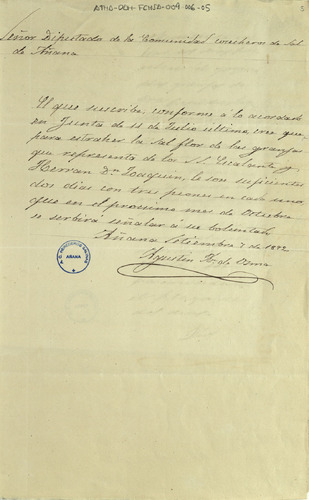 ATHA-DAH-FCHSA-009-006-05
5
Señor Diputado de la Comunidad cosecheros de Sal
de Añana
El que suscribe, conforme á lo acordado
en Junta de 11 de Julio ultimo cree que,
para estraher la Sal flor de las granjas
que representa de los SS. y
Herran Dn. Joaquin, le son suficientes
dos dias con tres peones en cada uno,
que en el proximo mes de Octubre
se serbirá señalar á su boluntad.
Añana Setiembre 7 de 1872
Agustin de Osma
AÑANA